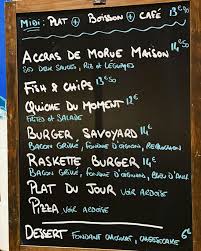 Midi: Plat + Boisson + Café 13€50
Accras de Morue Maison 14€50
Ses deux sauces, Riz et Légumes
Fish & Chips 13€50
Quiche du Moment 12€
Frites et Salade
Burger Savoyard 14€
Bacon Grillé, Fondue d'oignons, Reblochon
Raskette Burger 14€
Bacon Grillé, Fondue d'oignons, Bleu d'Auv
Plat du Jour voir ardoise
Pizza voir ardoise
Dessert Fondant chocolat, cheesecake 6€